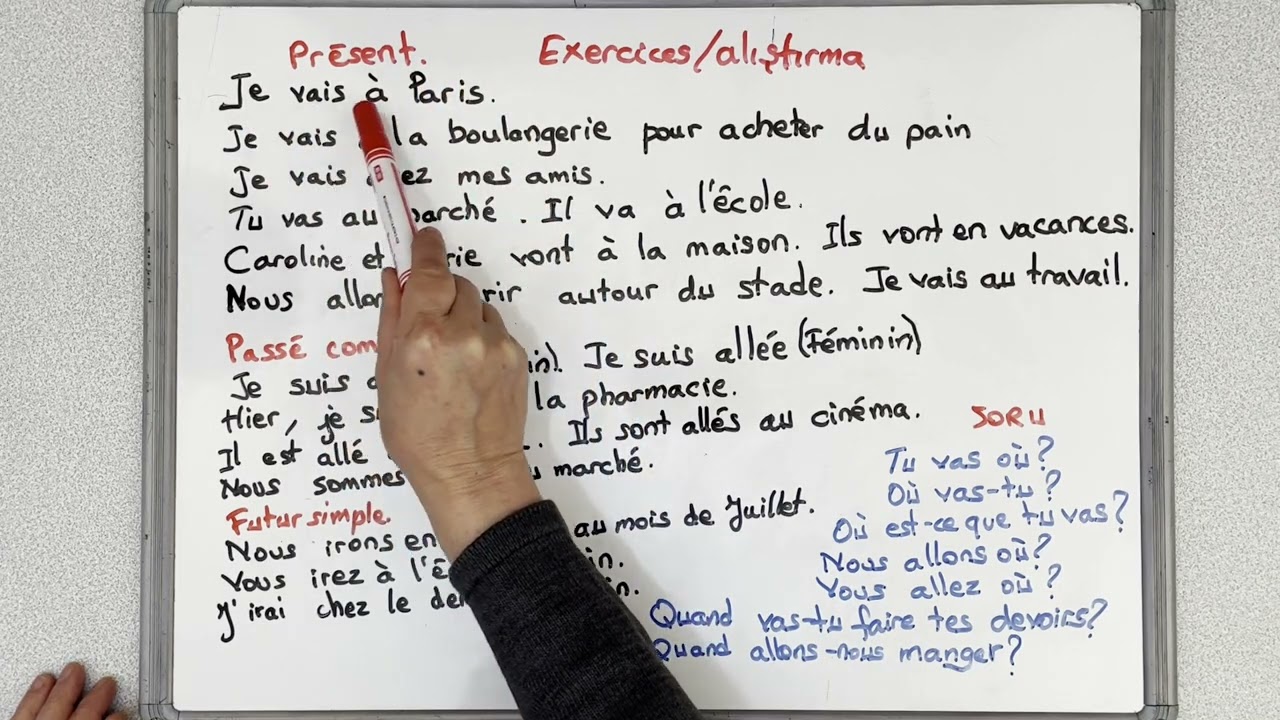 Présent. Exercices/alıştırma
Je vais à Paris.
Je vais la boulangerie pour acheter du pain
Je vais mes amis.
Tu vas au . Il va à l'école.
Caroline et vont à la maison. Ils vont en vacances.
Nous autour du stade. Je vais au travail.
Passé Je suis allée (Féminin)
Je suis la pharmacie.
Hier, je
Il est allé Ils sont allés au cinéma.
Nous sommes marché.
Futur simple.
Nous irons en au mois de Juillet.
Vous irez à
J'irai chez le
SORU
Tu vas où?
Où vas-tu?
Où est-ce que tu vas?
Nous allons où?
Vous allez où?
Quand vas-tu faire tes devoirs?
Quand allons-nous manger?